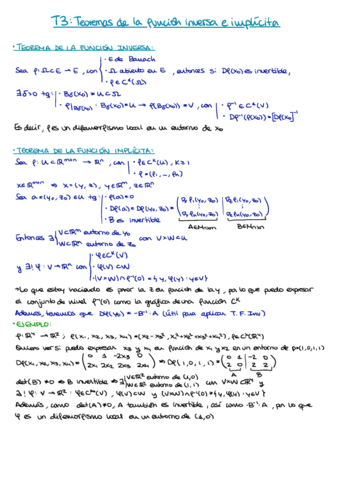 T3: Teoremas de la función inversa e implícita
· TEOREMA DE LA FUNCIÓN INVERSA:
· E de Banach
Sea f: Ω⊂E → E, con · Ω abierto en E, entonces si Df(x₀) es invertible,
· f∈Cᵏ(Ω)
∃δ>0 tq: · B_δ(x₀)=U⊂Ω
· f|B_δ(x₀): B_δ(x₀)=U → f(B_δ(x₀))=V, con · f⁻¹∈Cᵏ(V)
· Df⁻¹(f(x₀))=[Df(x₀)]⁻¹
Es decir, f es un difeomorfismo local en un entorno de x₀
· TEOREMA DE LA FUNCIÓN IMPLÍCITA:
Sea f: U⊂ℝᵐ⁺ⁿ → ℝⁿ, con · f∈Cᵏ(U), k≥1
· f=(f₁,…,fₙ)
x∈ℝᵐ⁺ⁿ ⇒ x=(y,z), y∈ℝᵐ, z∈ℝⁿ
Sea a=(y₀,z₀)∈U tq · f(a)=0
· Df(a)=Df(y₀,z₀)=
· B es invertible
Entonces ∃ V⊂ℝᵐ entorno de y₀
W⊂ℝⁿ entorno de z₀ con V×W⊂U
· φ∈Cᵏ(V)
y ∃! φ: V→ℝⁿ con · φ(V)⊂W
· (V×W)∩f⁻¹(0)={(y,φ(y)): y∈V}
*Lo que estoy haciendo es poner la z en función de la y, por lo que puedo expresar
el conjunto de nivel f⁻¹(0) como la gráfica de una función Cᵏ
Además, tenemos que Dφ(y₀)=-B⁻¹·A (útil para aplicar T.F.Inv)
· EJEMPLO:
Quiero ver si puedo expresar x₃ y x₄ en función de x₁ y x₂ en un entorno de p=(1,0,1,1)
det(B)≠0 ⇒ B invertible ⇒ ∃ V⊂ℝ² entorno de (1,0)
W⊂ℝ² entorno de (1,1) con V×W⊂ℝ⁴ y
∃! φ: V→ℝ² con φ∈Cᵏ(V), φ(V)⊂W y (V×W)∩f⁻¹(0)={(y,φ(y)): y∈V}
Además, como det(A)≠0, A también es invertible, así como -B⁻¹·A, por lo que
φ es un difeomorfismo local en un entorno de (1,0)